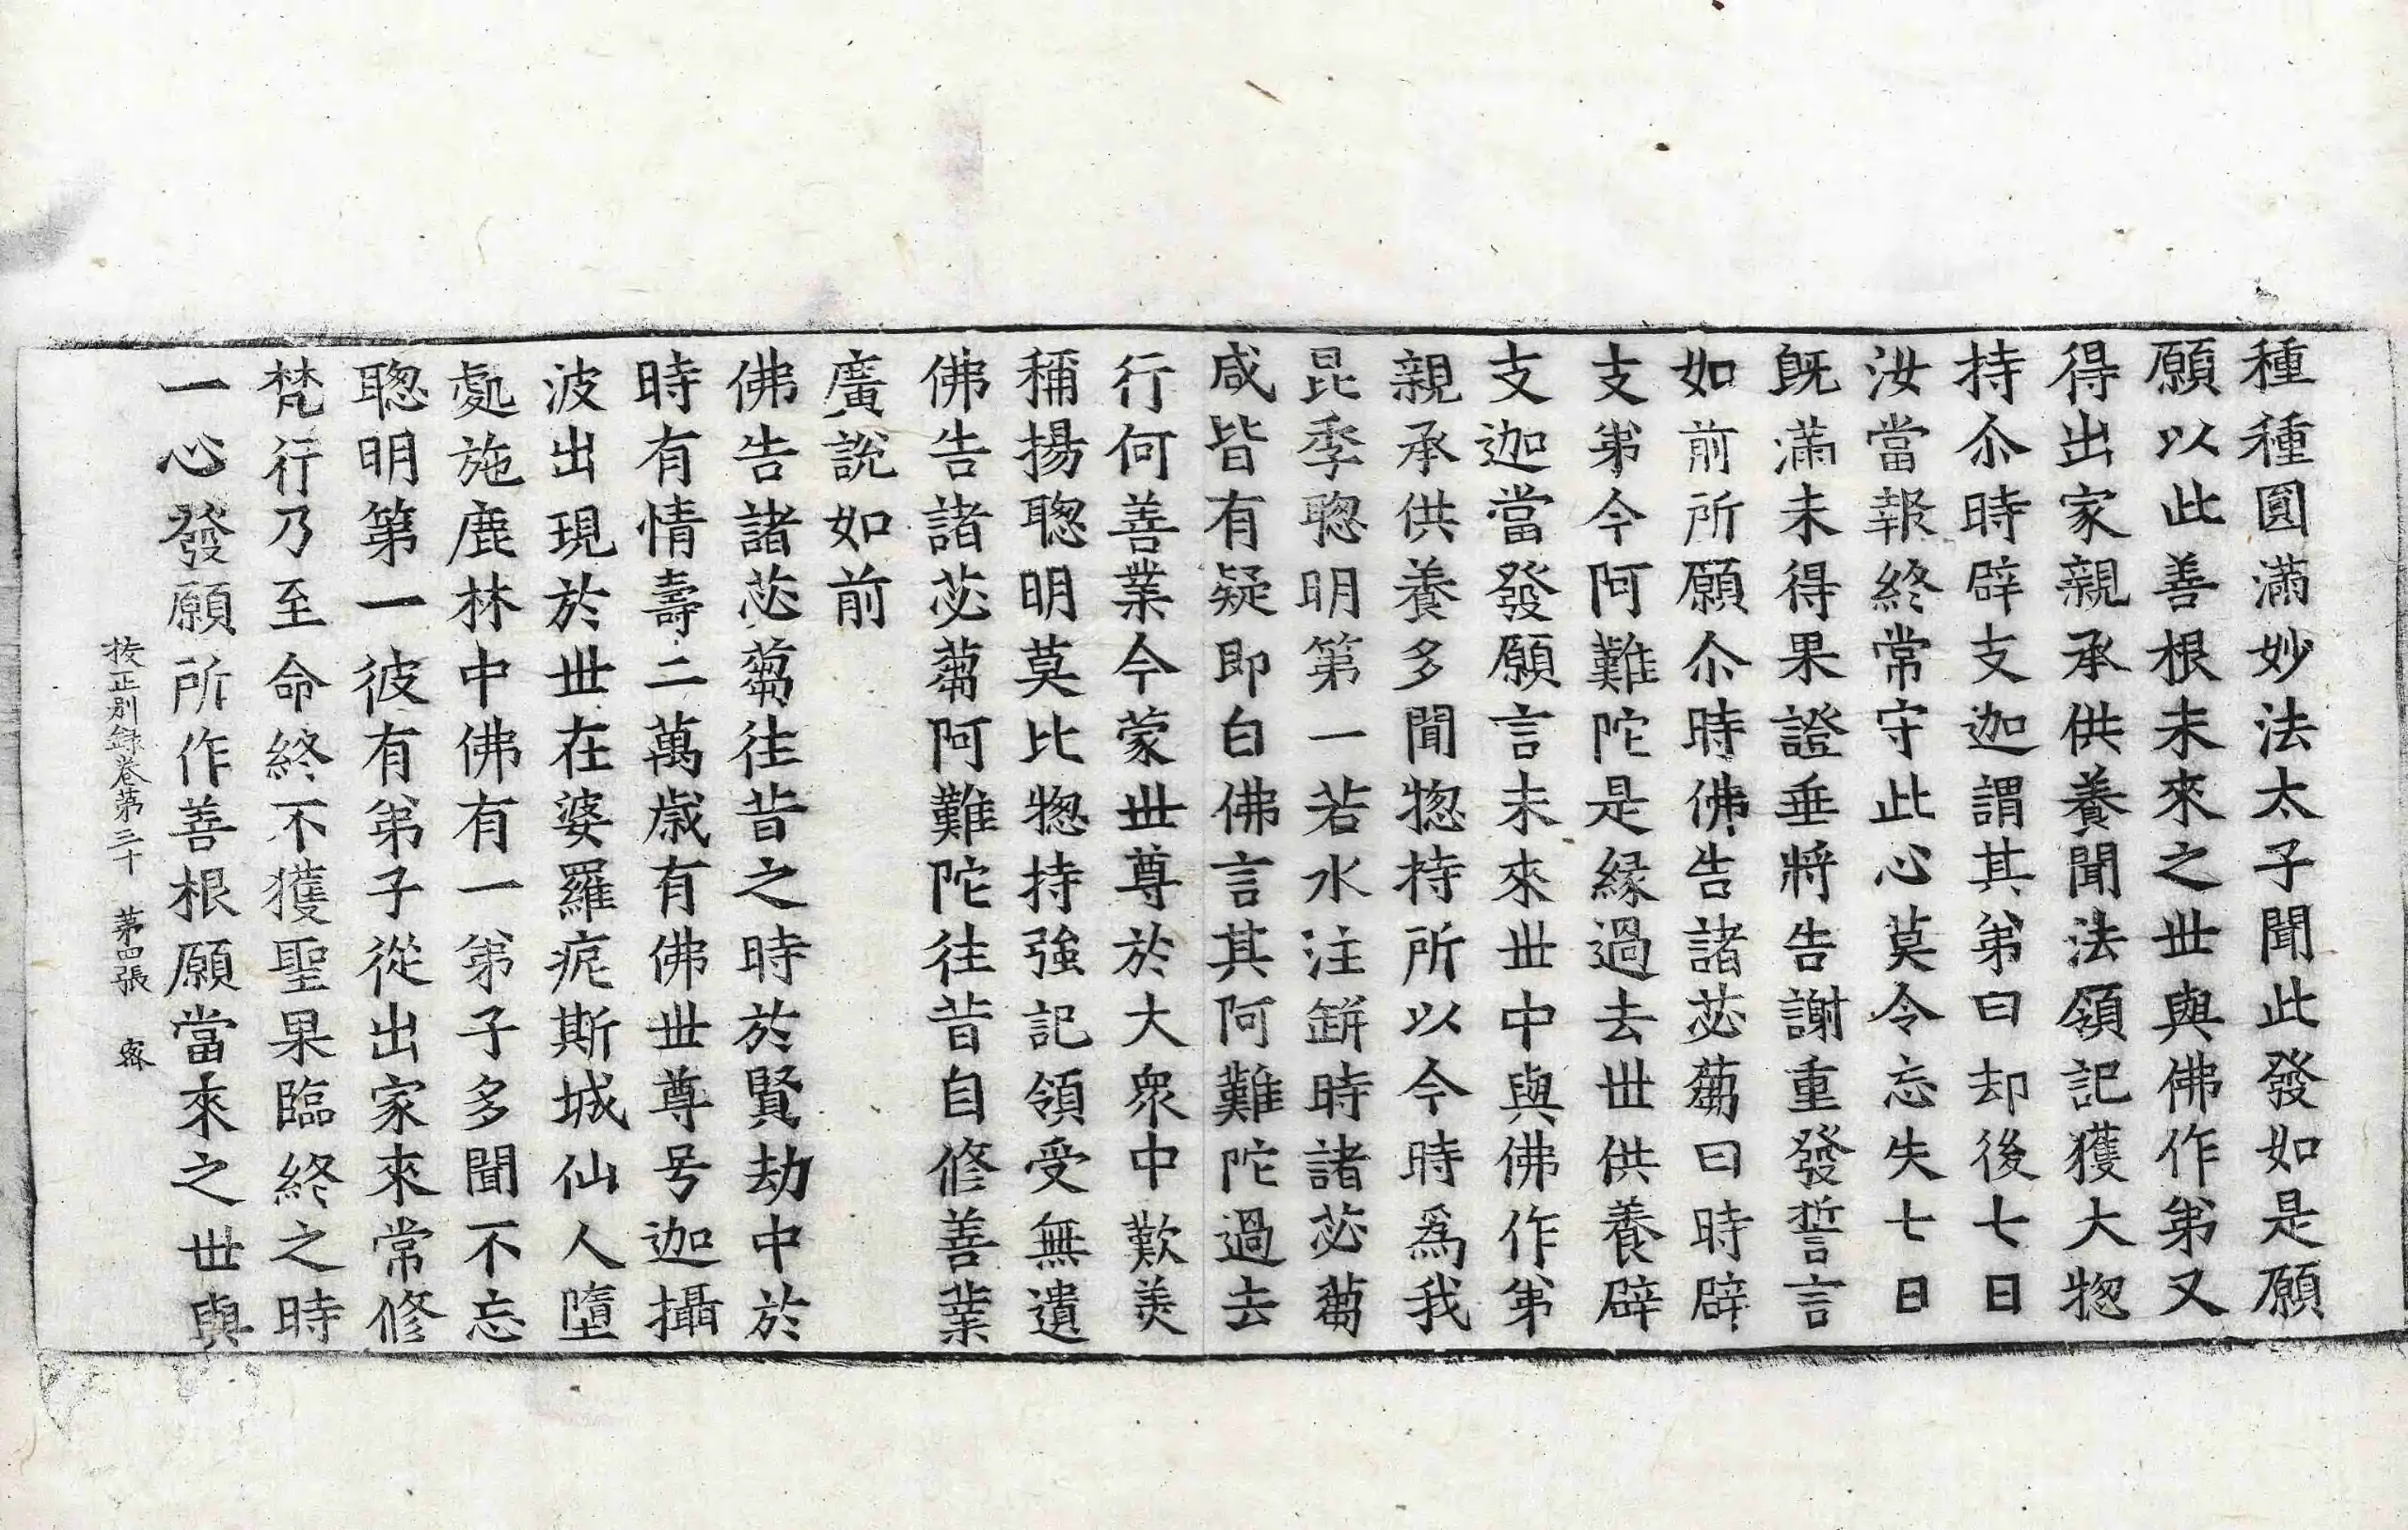 種種圓滿妙法太子聞此發如是願
願以此善根未來之世與佛作弟又
得出家親承供養聞法領記獲大惣
持尒時辟支迦謂其弟曰却後七日
汝當報終常守此心莫令忘失七日
旣滿未得果證垂將告謝重發誓言
如前所願尒時佛告諸苾蒭曰時辟
支弟今阿難陀是緣過去世供養辟
支迦當發願言未來世中與佛作弟
親承供養多聞惣持所以今時爲我
昆季聰明第一若水注缾時諸苾蒭
咸皆有疑即白佛言其阿難陀過去
行何善業今蒙世尊於大衆中歎羙
稱揚聰明莫比惣持強記領受無遺
佛告諸苾蒭阿難陀往昔自修善業
廣說如前
佛告諸苾蒭往昔之時於賢劫中於
時有情壽二萬歲有佛世尊号迦攝
波出現於世在婆羅痆斯城仙人墮
處施鹿林中佛有一弟子多聞不忘
聰明第一彼有弟子從出家來常修
梵行乃至命終不獲聖果臨終之時
一心發願所作善根願當來之世與
挍正別錄卷第三十 第四張 霂